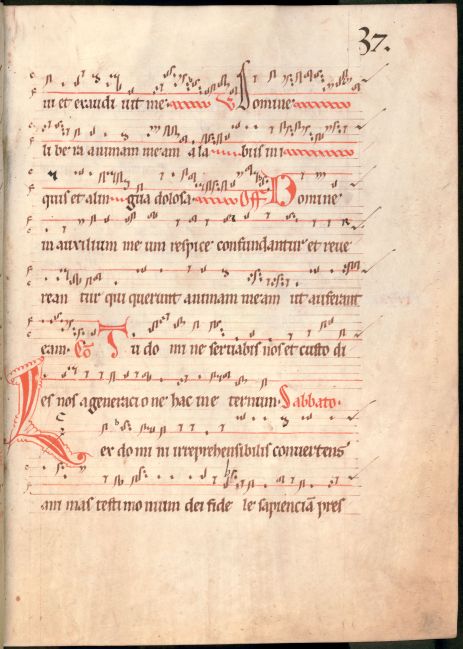 37.
ni et exaudi uit me V Domine
li be ra animam meam a la biis ini
quis et a lin gua dolosa Off Domine
in auxilium me um respice confundantur et reue
rean tur qui querunt animam meam ut auferant
eam. Co Tu do mi ne seruabis nos et custo di
es nos a generaci o ne hac in e ternum. Sabbato.
Lex do mi ni irreprehensibilis conuertens
ani mas testi mo nium dei fide le sapienciā pres